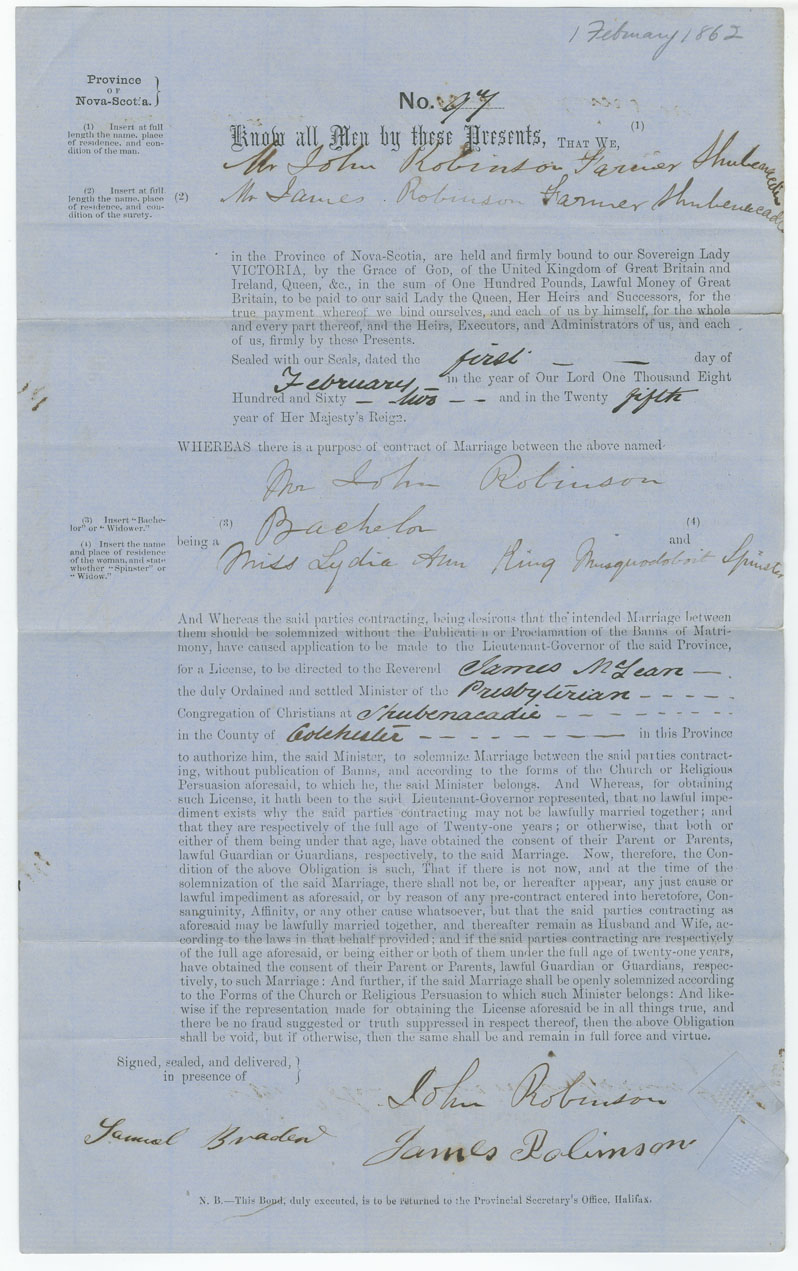 1 February 1862
Province
OF
Nova-Scotia.
No. 97
(1) Insert at full
length the name, place
of residence, and con-
dition of the man.
Know all Men by these Presents, THAT WE, (1)
Mr John Robinson Farmer Shubenacadie
(2) Insert at full
length the name, place
of residence, and con-
dition of the surety.
(2) Mr James Robinson Farmer Shubenacadie
in the Province of Nova-Scotia, are held and firmly bound to our Sovereign Lady
VICTORIA, by the Grace of GOD, of the United Kingdom of Great Britain and
Ireland, Queen, &c., in the sum of One Hundred Pounds, Lawful Money of Great
Britain, to be paid to our said Lady the Queen, Her Heirs and Successors, for the
true payment whereof we bind ourselves, and each of us by himself, for the whole
and every part thereof, and the Heirs, Executors, and Administrators of us, and each
of us, firmly by these Presents.
Sealed with our Seals, dated the first — — day of
February in the year of Our Lord One Thousand Eight
Hundred and Sixty — two – – and in the Twenty fifth
year of Her Majesty's Reign.
WHEREAS there is a purpose of contract of Marriage between the above named
Mr John Robinson
(3) Insert "Bache-
lor" or "Widower."
being a (3) Bachelor and (4)
(4) Insert the name
and place of residence
of the woman, and state
whether "Spinster" or
"Widow."
Miss Lydia Ann King Musquodoboit Spinster
And Whereas the said parties contracting, being desirous that the intended Marriage between
them should be solemnized without the Publicati n or Proclamation of the Banns of Matri-
mony, have caused application to be made to the Lieutenant-Governor of the said Province,
for a License, to be directed to the Reverend James McLean —.
the duly Ordained and settled Minister of the Presbyterian – – – – –
Congregation of Christians at Shubenacadie – – – – – – – – –
in the County of Colchester – – – – – – – — in this Province
to authorize him, the said Minister, to solemnize Marriage between the said parties contract-
ing, without publication of Banns, and according to the forms of the Church or Religious
Persuasion aforesaid, to which he, the said Minister belongs. And Whereas, for obtaining
such License, it hath been to the said Lieutenant-Governor represented, that no lawful impe-
diment exists why the said parties contracting may not be lawfully married together; and
that they are respectively of the full age of Twenty-one years; or otherwise, that both or
either of them being under that age, have obtained the consent of their Parent or Parents,
lawful Guardian or Guardians, respectively, to the said Marriage. Now, therefore, the Con-
dition of the above Obligation is such, That if there is not now, and at the time of the
solemnization of the said Marriage, there shall not be, or hereafter appear, any just cause or
lawful impediment as aforesaid, or by reason of any pre-contract entered into heretofore, Con-
sanguinity, Affinity, or any other cause whatsoever, but that the said parties contracting as
aforesaid may be lawfully married together, and thereafter remain as Husband and Wife, ac-
cording to the laws in that behalf provided; and if the said parties contracting are respectively
of the full age aforesaid, or being either or both of them under the full age of twenty-one years,
have obtained the consent of their Parent or Parents, lawful Guardian or Guardians, respec-
tively, to such Marriage: And further, if the said Marriage shall be openly solemnized according
to the Forms of the Church or Religious Persuasion to which such Minister belongs: And like-
wise if the representation made for obtaining the License aforesaid be in all things true, and
there be no fraud suggested or truth suppressed in respect thereof, then the above Obligation
shall be void, but if otherwise, then the same shall be and remain in full force and virtue.
Signed, sealed, and delivered,
in presence of
John Robinson
Samuel Braden
James Robinson
N. B.—This Bond, duly executed, is to be returned to the Provincial Secretary's Office, Halifax.